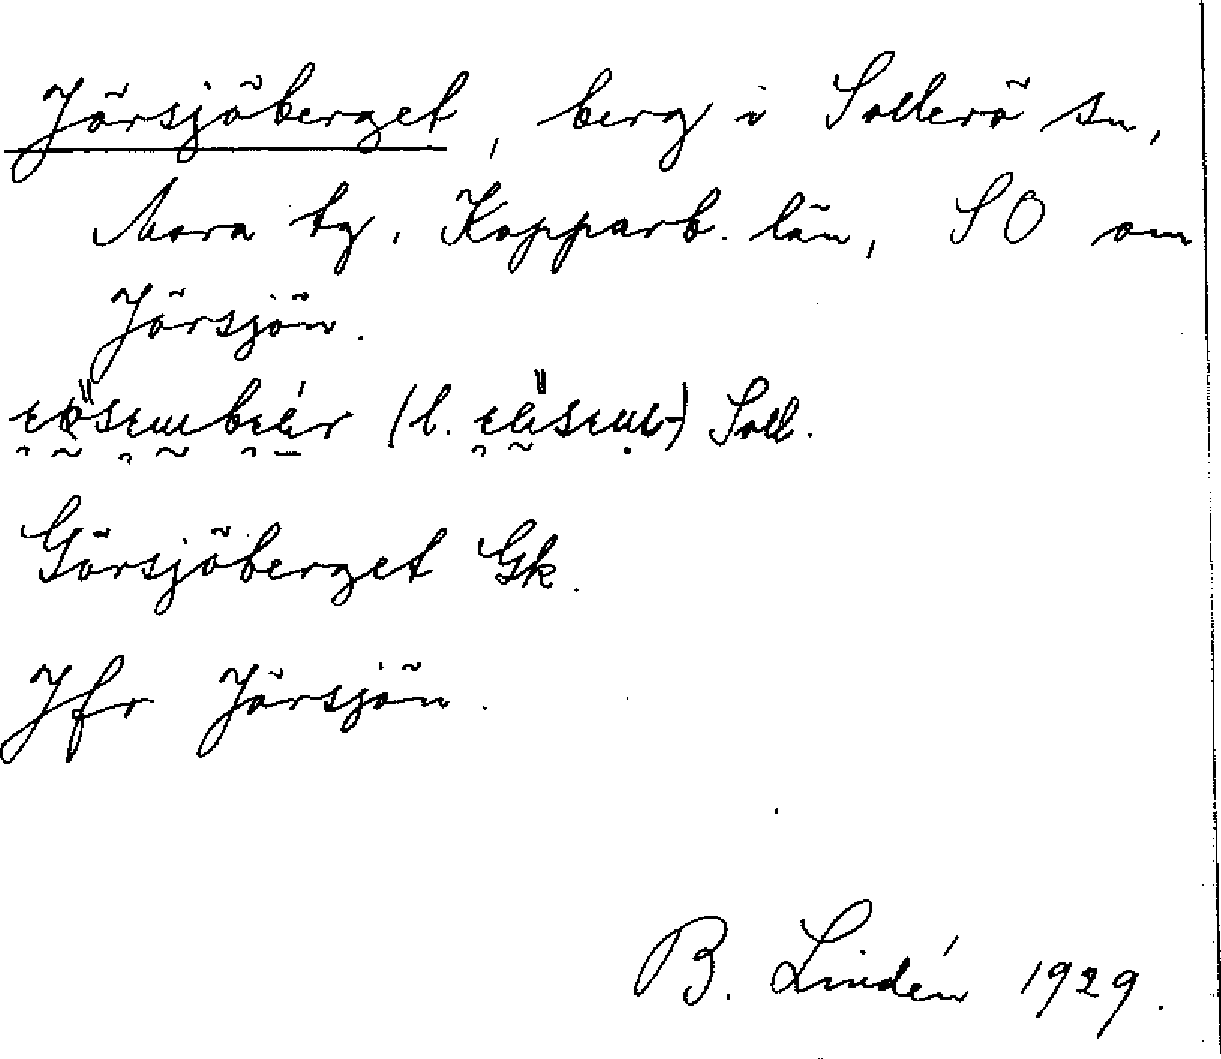 Jörsjöberget, berg i Sollerö sn,
Mora tg, Kopparb. län, SO om
Jörsjön.
(l. Soll.
Görsjöberget Gk.
Jfr Jörsjön.
B. Lindén 1929.